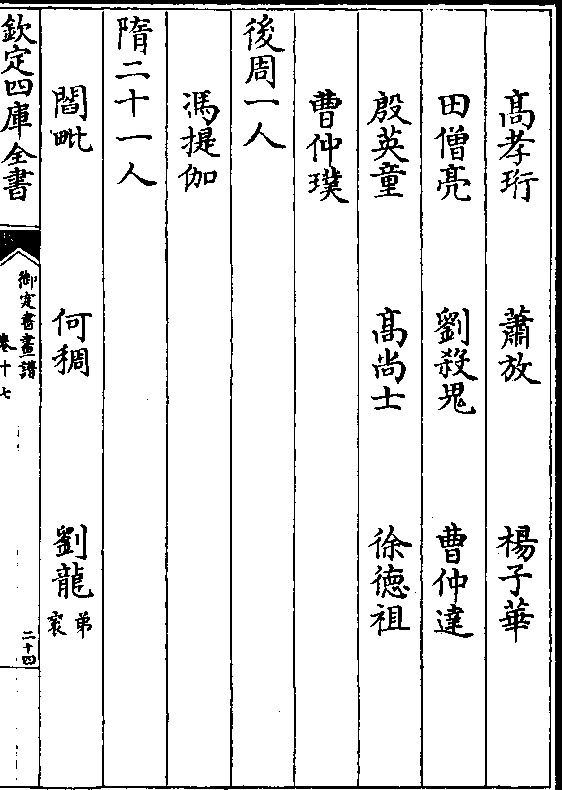 高孝珩 蕭放 楊子華
田僧亮 劉殺鬼 曹仲達
殷英童 高尚士 徐德祖
曹仲璞
後周一人
馮提伽
隋二十一人
閻毗 何稠 劉龍 弟衮
欽定四庫全書
御定書畫譜
卷十七
二十四